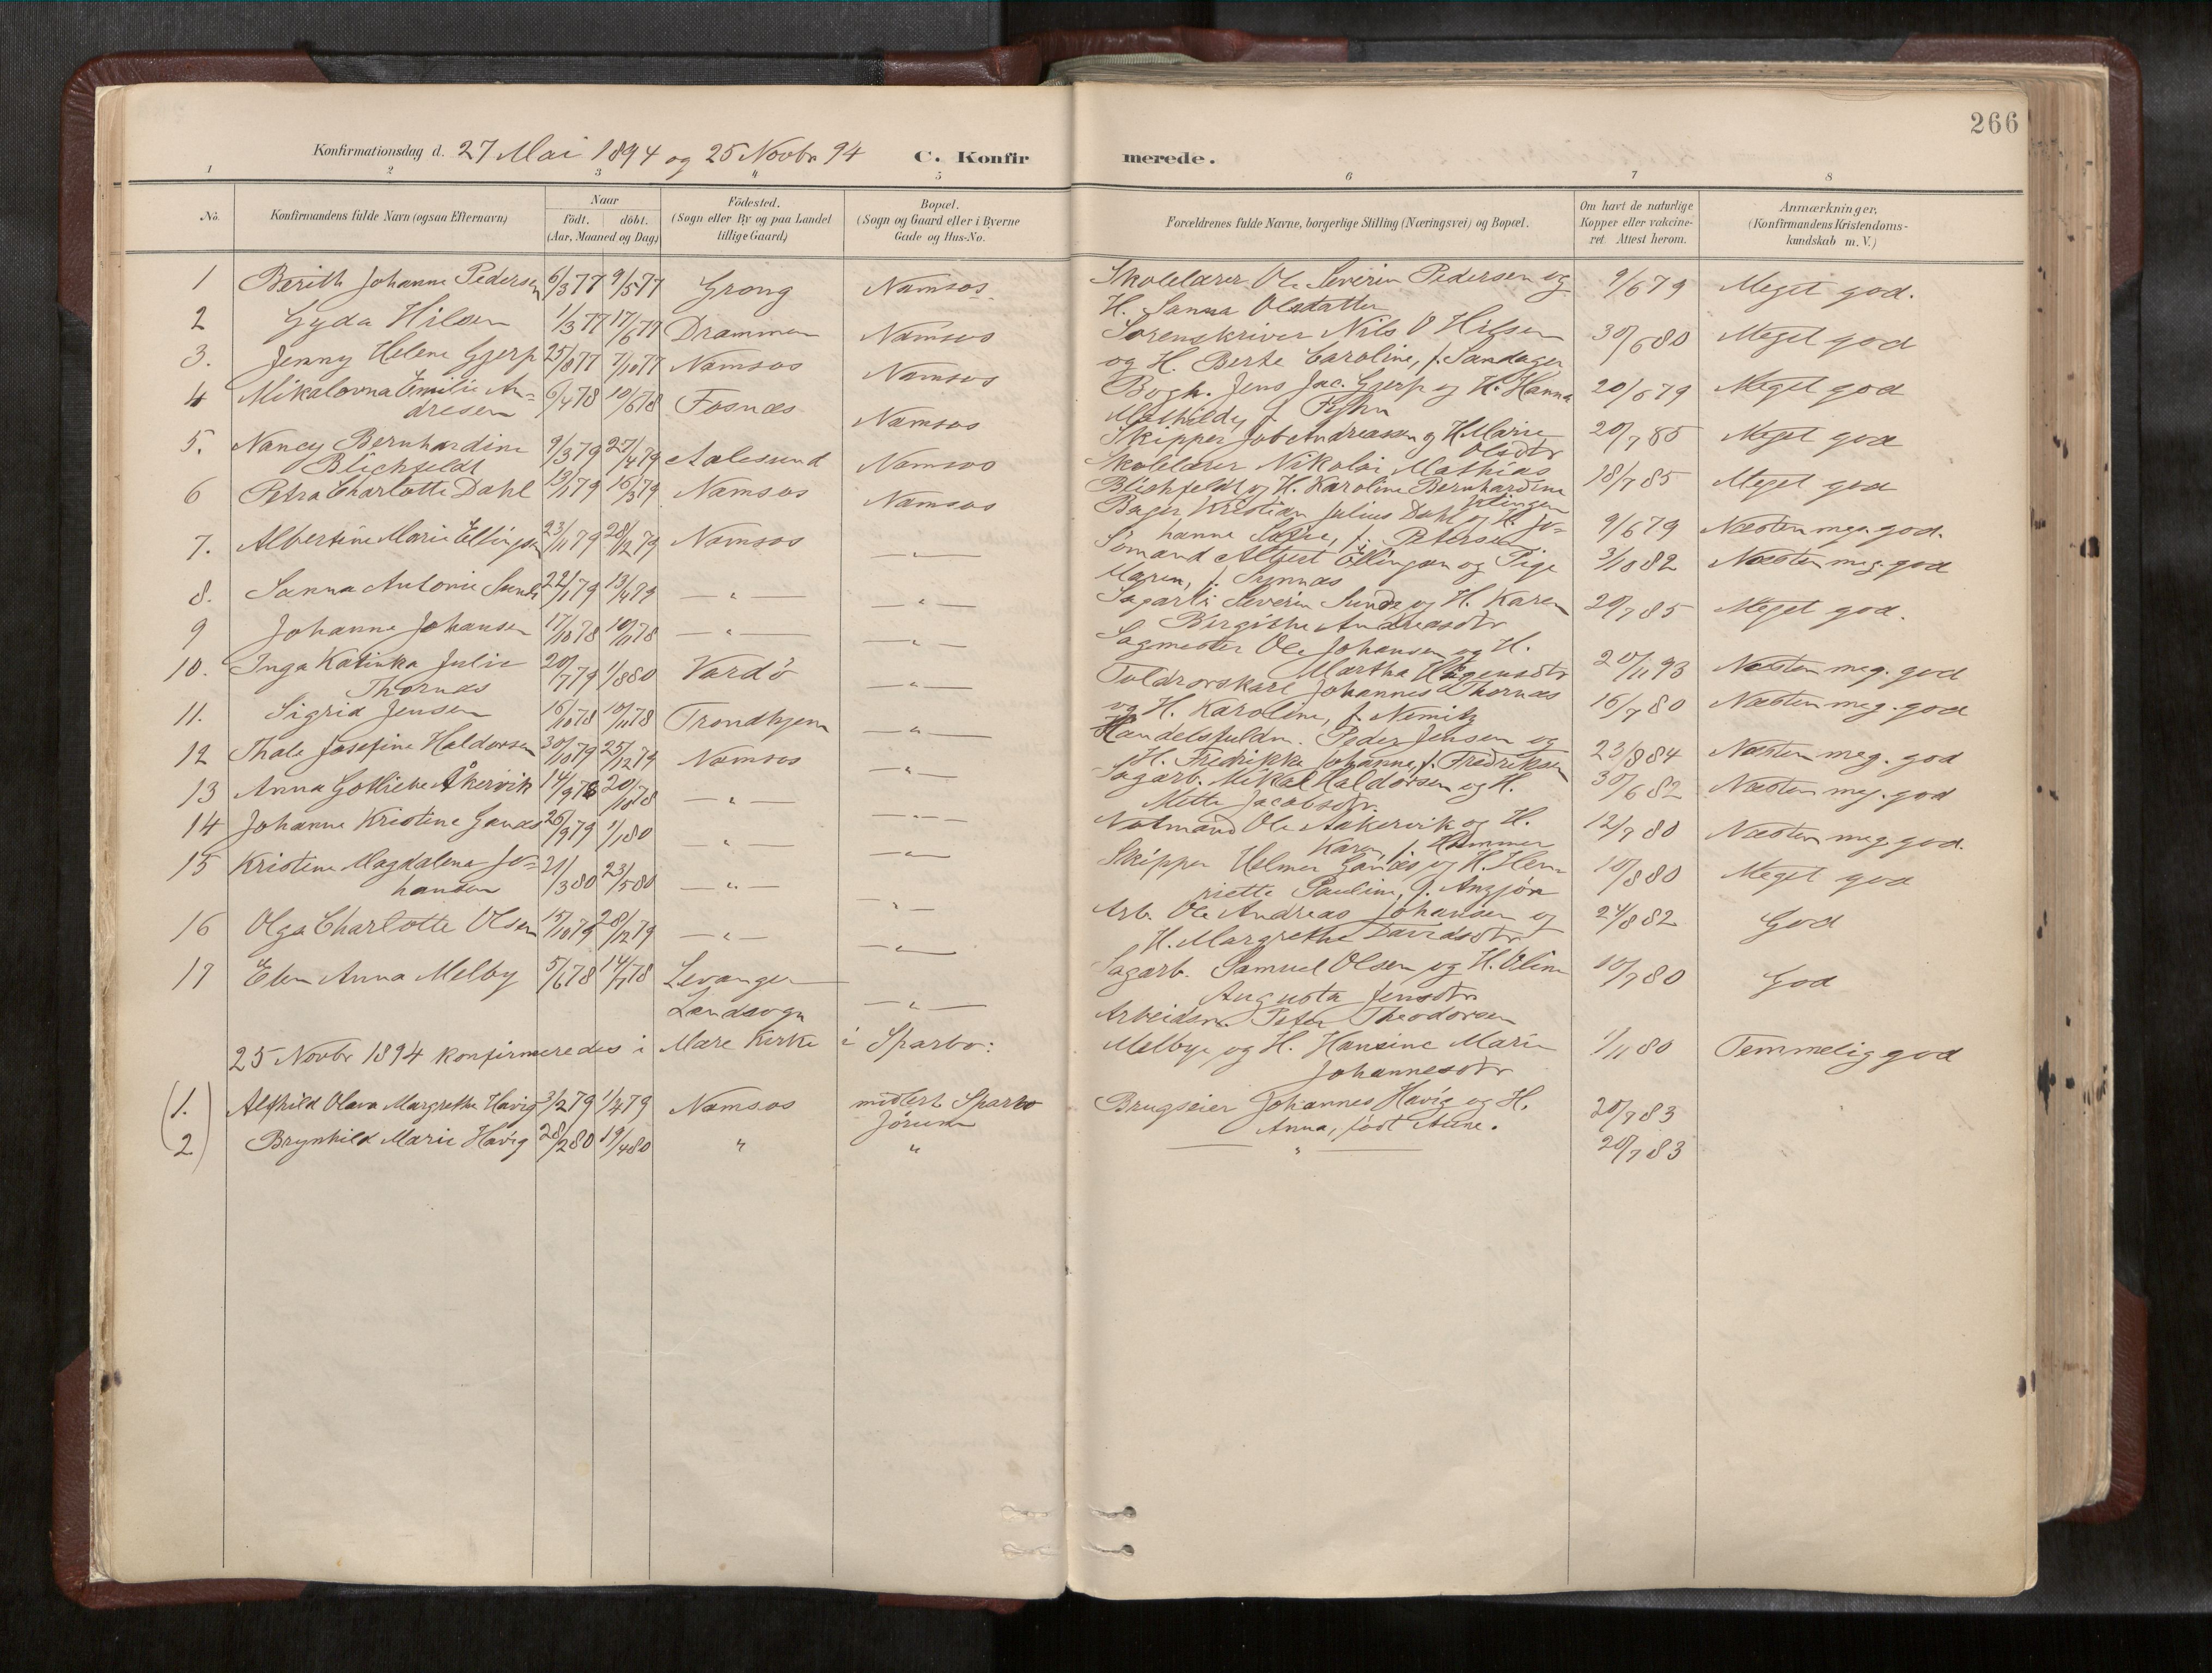 266
Konfirmationsdag d. 27 Mai 1894 og 25 Novbr 94 C. Konfirmerede.
1 2 3 4 5 6 7 8
No. Konfirmandens fulde Navn (ogsaa Efternavn) Naar født. døbt. (Aar, Maaned og Dag) Födested. (Sogn eller By og paa Landet tillige Gaard) Bopæl. (Sogn og Gaard eller i Byerne Gade og Hus-No. Forældrenes fulde Navne, borgerlige Stilling (Næringsvei) og Bopæl. Om havt de naturlige Kopper eller vakcineret. Attest herom. Anmærkninger. (Konfirmandens Kristendomskundskab m. V.)
1 Berith Johanne Pedersen 6/3 77 9/5 77 Grong Namsos. Skolelærer Ole Severin Pedersen og 9/6 79 Meget god.
H. Sanna Olsdatter
2 Gyda Hilsen 1/3 77 17/6 77 Drammen Namsos Sorenskriver Nils O Hilsen 30/6 80 Meget god
og H. Berte Caroline, f. Sandager
3. Jenny Helene Gjerp 25/8 77 7/10 77 Namsos Namsos Bogh. Jens Jac. Gjerp og H. Hanna 20/6 79 Meget god
Mathilde, f.
4 Mikalovna Emilie An= 6/4 78 10/6 78 Fosnæs Namsos Skipper Job Andreasen og H. Marie 20/7 85 Meget god
dresen Olsdtr
5. Nancy Bernhardine 9/3 79 27/4 79 Aalesund Namsos Skolelærer Nikolai Mathias 18/7 85 Meget god
Blichfeldt Blichfeldt og H. Karoline Bernhardine
6 Petra Charlotte Dahl 13/1 79 16/3 79 Namsos Namsos Bager Kristian Julius Dahl og H. Jo= 9/6 79 Næsten meg. god.
hanne Sofie, f. Petersen
7. Albertine Marie Ellingsen 23/11 79 28/12 79 Namsos — " — Sømand Albert Ellingsen og Pige 3/10 82 Næsten meg. god
Maren, f.
8. Sanna Antonie Sunde 22/1 79 13/4 79 — " — — " — Sagarb. Severin Sunde og H. Karen 20/7 85 Meget god.
Birgithe Andreasdtr
9 Johanne Johansen 17/10 78 10/11 78 — " — — " — Sagmester Ole Johansen og H. 20/11 93 Næsten meg. god
Martha
10. Inga Katinka Julie 20/7 79 1/8 80 Vardö — " — Toldrorskarl Johannes Thornæs 16/7 80 Næsten meg. god
Thornæs og H. Karoline, f. Nemitz
11. Sigrid Jensen 15/10 78 10/11 78 Trondhjem — " — Handelsfuldm. Peder Jensen og 23/8 84 Næsten meg. god
H. Fredrikke Johanne, f. Fredriksen
12 Thale Josefine Haldorsen 30/10 79 25/12 79 Namsos — " — Sagarb. Mikal Haldorsen og H. 30/6 82 Næsten meg. god
Mette Jacobsdtr.
13 Anna Gotliebe Åkervik 14/9 78 20/10 78 — " — — " — Notmand Ole Aakervik og H. 12/7 80 Næsten meg. god.
Karen f. Hammer
14 Johanne Kristine Ganæs 26/9 79 1/1 80 " — — " — Skipper Helmer Ganæs og H. Hen= 10/8 80 Meget god
riette Pauline, f. Anzjön
15 Kristine Magdalena Jo= 21/3 80 23/5 80 — " — — " — Arb. Ole Andreas Johansen og 24/8 82 God
hansen H. Margrethe Davidsdtr
16 Olga Charlotte Olsen 15/10 79 28/12 79 — " — — " — Sagarb. Samuel Olsen og H. Oline 10/7 80 God
Augusta Jensdtr
17 Elen Anna Melby 5/6 78 14/7 78 Levanger — " — Arbeidsm. Peter Theodorsen 1/11 80 Temmelig god
Landsogn Melbye og H. Hansine Marie
Johannesdtr
25 Novbr 1894 konfirmeredes i Mare Kirke i Sparbo:
(1.) Alfhild Olava Margrethe Havig 3/2 79 1/4 79 Namsos midlert. Sparbo Brugseier Johannes Havig og H. 20/7 83
Jørum Anna, født Aune.
(2) Brynhild Marie Havig 28/2 80 19/4 80 " " — " — 20/7 83